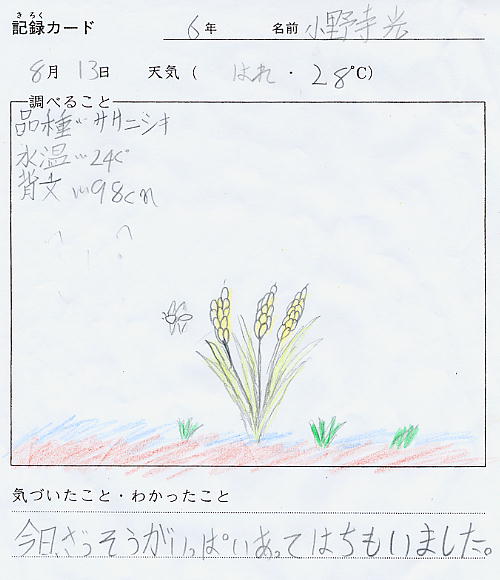 きろく
記録カード 6年 名前 小野寺光
8月 13日 天気 ( はれ ・ 28℃)
調べること
品種…ササニシキ
水温…24℃
背丈…98cm
気づいたこと・わかったこと
今日、ざっそうがいっぱいあってはちもいました。